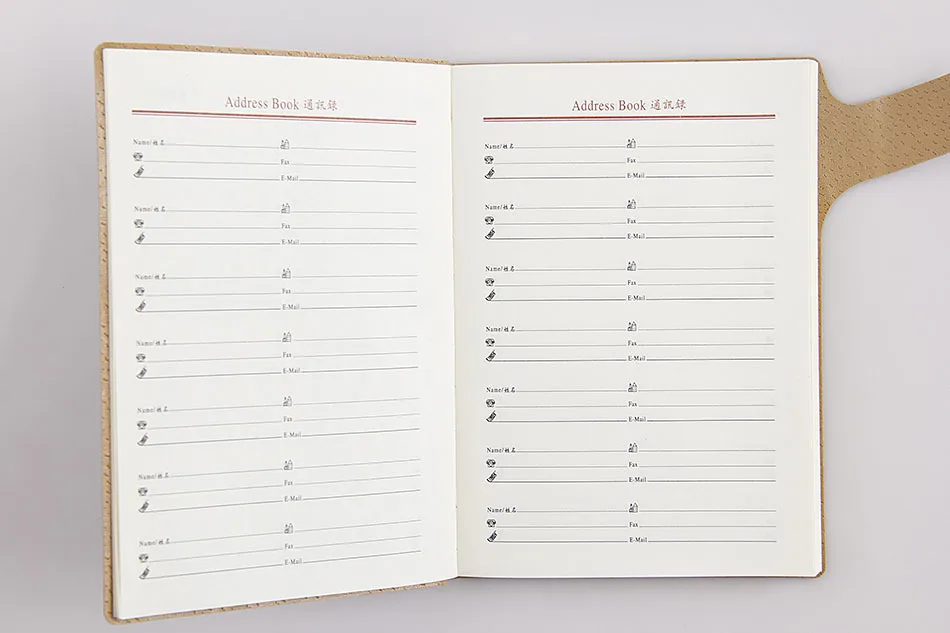 Address Book 通訊錄
Name/姓名
Fax
E-Mail
Name/姓名
Fax
E-Mail
Name/姓名
Fax
E-Mail
Name/姓名
Fax
E-Mail
Name/姓名
Fax
E-Mail
Name/姓名
Fax
E-Mail
Name/姓名
Fax
E-Mail
Address Book 通訊錄
Name/姓名
Fax
E-Mail
Name/姓名
Fax
E-Mail
Name/姓名
Fax
E-Mail
Name/姓名
Fax
E-Mail
Name/姓名
Fax
E-Mail
Name/姓名
Fax
E-Mail
Name/姓名
Fax
E-Mail